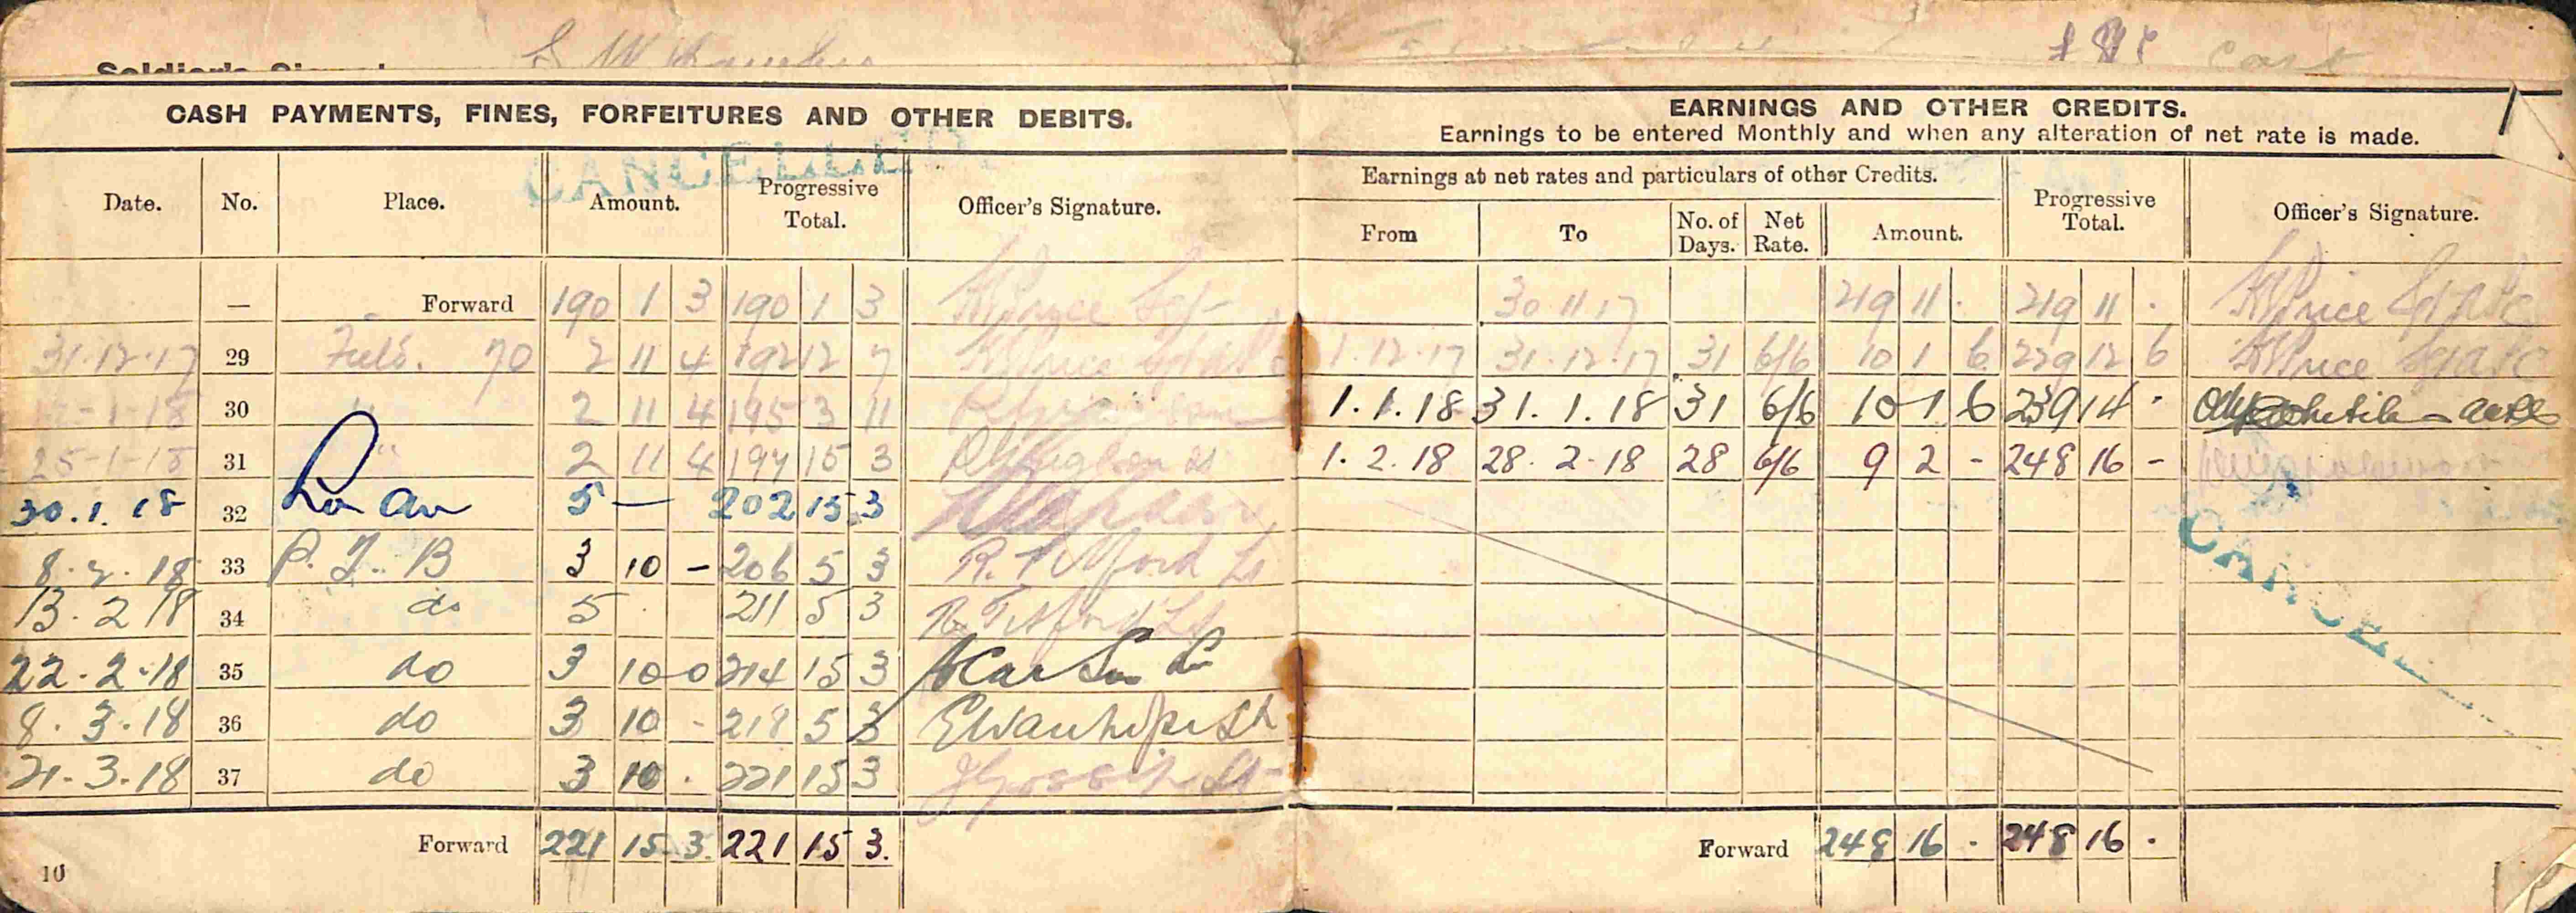 Soldier's
cast
CASH PAYMENTS, FINES, FORFEITURES AND OTHER DEBITS.
CANCELLED
Date. No. Place. Amount. Progressive Total. Officer's Signature.
— Forward 190 1 3 190 1 3
31.12.17 29 Field. 70 2 11 4 192 12 7
-1-18 30 " 2 11 4 195 3 11
25-1-18 31 " 2 11 4 197 15 3
30.1.18 32 5 — 202 15 3
8.2.18 33 P. 3 10 - 206 5 3
13.2 18 34 do 5 . 211 5 3
22.2.18 35 do 3 10 0 214 15 3
8.3.18 36 do 3 10 - 218 5 3
21.3.18 37 do 3 10 . 221 15 3
Forward 221 15 3. 221 15 3.
10
EARNINGS AND OTHER CREDITS.
Earnings to be entered Monthly and when any alteration of net rate is made.
Earnings at net rates and particulars of other Credits. Progressive Total. Officer's Signature.
From To No. of Days. Net Rate. Amount.
30.11.17 219 11 . 219 11 . Price
1.12.17 31.12.17 31 6/6 10 1 6 229 12 6 Price
1.1.18 31.1.18 31 6/6 10 1 6 239 14 .
1.2.18 28.2.18 28 6/6 9 2 - 248 16 -
CANCEL
Forward 248 16 . 248 16 .